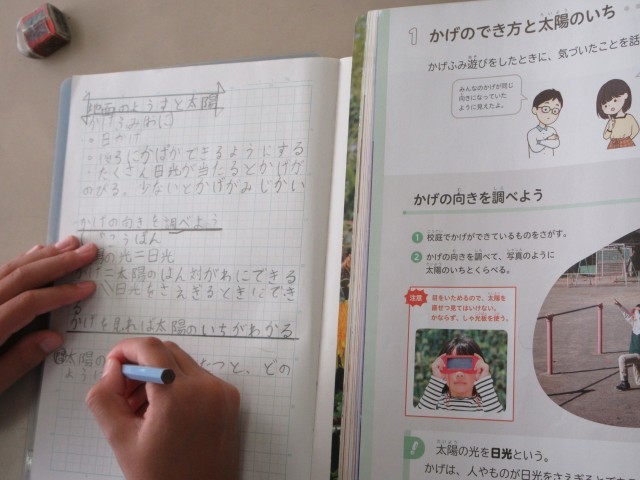 地面のようすと太陽
かげふみわに
・日かげ
・後ろにかげができるようにする
・たくさん日光が当たるとかげが
のびる。少ないとかげがみじかい
かげの向きを調べよう
の光=日光
かげ=太陽のはんたいがわにできる
日光をさえぎるときにでき
る
かげを見れば太陽のいちがわかる
太陽の たつと、どの
よう
1 かげのでき方と太陽のいち
かげふみ遊びをしたときに、気づいたことを話
みんなのかげが同じ
向きになっていた
ように見えたよ。
かげの向きを調べよう
1 校庭でかげができているものをさがす。
2 かげの向きを調べて、写真のように
太陽のいちとくらべる。
注意 目をいためるので、太陽を
直せつ見てはいけない。
かならず、しゃ光板を使う。
太陽の光を日光という。
かげは、人やものが日光をさえぎるとできる